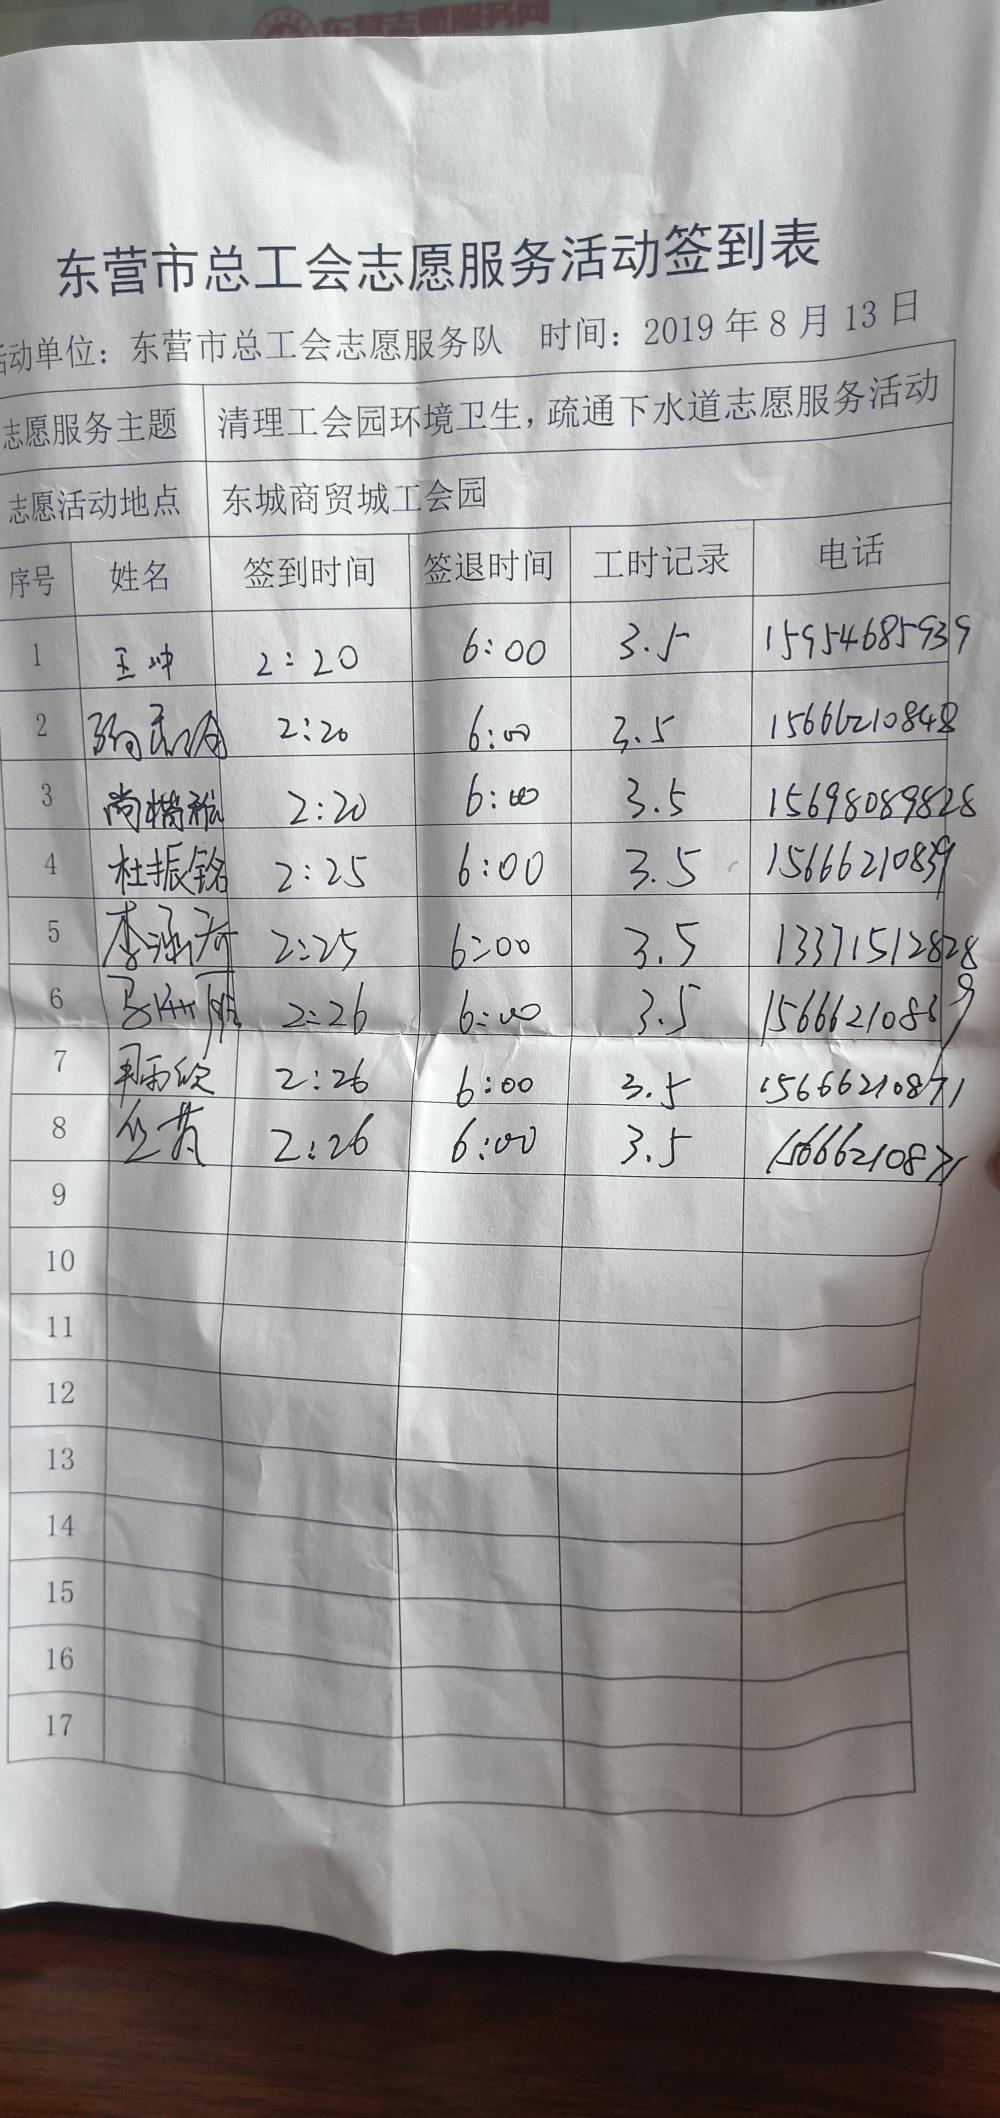 东营志愿服务网
东营市总工会志愿服务活动签到表
活动单位：东营市总工会志愿服务队 时间：2019年8月13日
志愿服务主题 清理工会园环境卫生，疏通下水道志愿服务活动
志愿活动地点 东城商贸城工会园
序号 姓名 签到时间 签退时间 工时记录 电话
1 王冲 2:20 6:00 3.5 15954685939
2 2:20 6:00 3.5 15666210848
3 2:20 6:00 3.5 15698089828
4 杜振铭 2:25 6:00 3.5 15666210839
5 李涵 2:25 6:00 3.5 13371512828
6 2:26 6:00 3.5
7 2:26 6:00 3.5 15666210871
8 2:26 6:00 3.5 15666210871
9
10
11
12
13
14
15
16
17